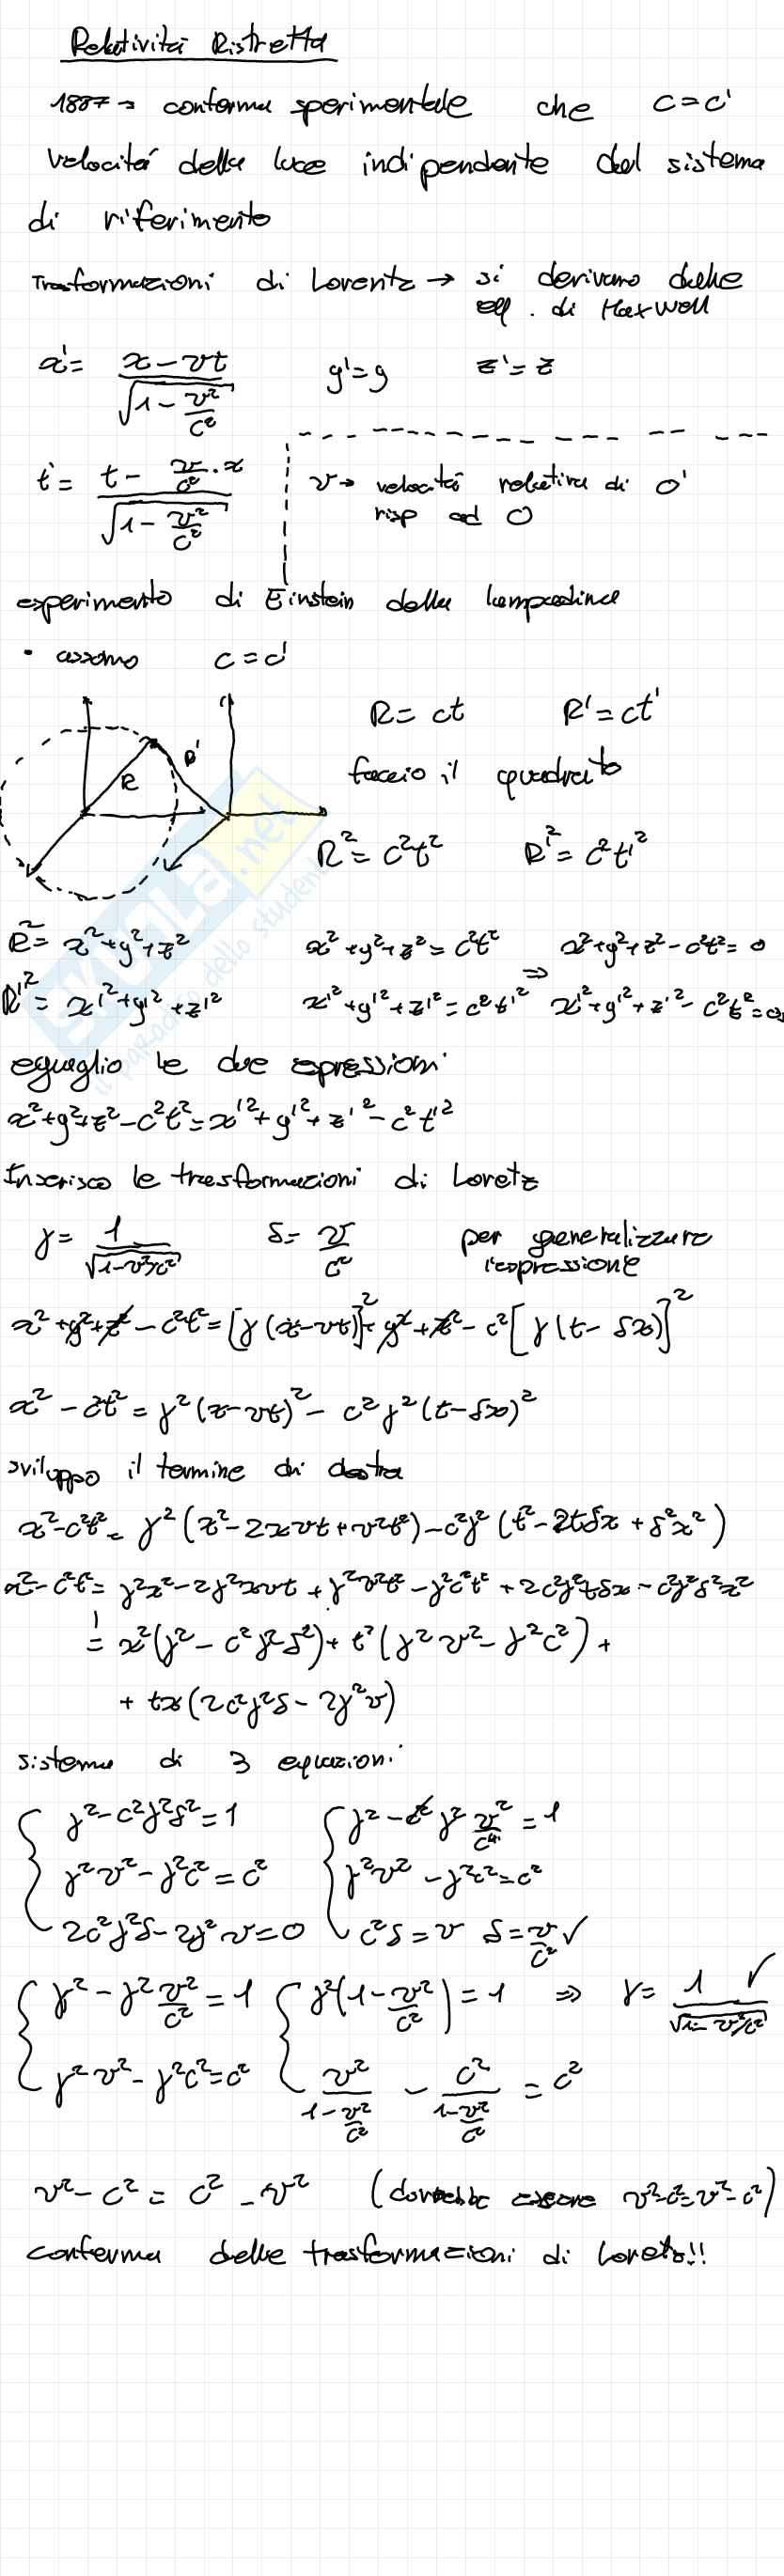 Relatività Ristretta
1887 → conferma sperimentale che c = c'
velocità della luce indipendente dal sistema
di riferimento
Trasformazioni di Lorentz → si derivano dalle
eq. di Maxwell
x' = (x - vt) / √(1 - v²/c²)   y' = y   z' = z
t' = (t - v/c² · x) / √(1 - v²/c²)   v → velocità relativa di O'
risp ad O
esperimento di Einstein della lampadina
• assomo c = c'
R = ct   R' = ct'
R   R'
faccio il quadrato
R² = c²t²   R'² = c²t'²
R² = x² + y² + z²   x² + y² + z² = c²t²   x² + y² + z² - c²t² = 0
⇒
R'² = x'² + y'² + z'²   x'² + y'² + z'² = c²t'²   x'² + y'² + z'² - c²t'² = 0
eguaglio le due espressioni
x² + y² + z² - c²t² = x'² + y'² + z'² - c²t'²
Inserisco le trasformazioni di Loretz
γ = 1 / √(1 - v²/c²)   δ = v/c²   per generalizzare
l'espressione
x² + y² + z² - c²t² = [γ(x - vt)]² + y² + z² - c²[γ(t - δx)]²
x² - c²t² = γ²(x - vt)² - c²γ²(t - δx)²
sviluppo il termine di destra
x² - c²t² = γ²(x² - 2xvt + v²t²) - c²γ²(t² - 2tδx + δ²x²)
x² - c²t² = γ²x² - 2γ²xvt + γ²v²t² - γ²c²t² + 2c²γ²tδx - c²γ²δ²x²
= x²(γ² - c²γ²δ²) + t²(γ²v² - γ²c²) +
+ tx(2c²γ²δ - 2γ²v)
sistema di 3 equazioni
γ² - c²γ²δ² = 1   γ² - c² γ² v²/c⁴ = 1
γ²v² - γ²c² = c²   γ²v² - γ²c² = c²
2c²γ²δ - 2γ²v = 0   c²δ = v   δ = v/c² ✓
γ² - γ² v²/c² = 1   γ²(1 - v²/c²) = 1   ⇒   γ = 1 / √(1 - v²/c²) ✓
γ²v² - γ²c² = c²   v² / (1 - v²/c²) - c² / (1 - v²/c²) = c²
v² - c² = c² - v²   (dovrebbe essere v² - c² = v² - c²)
conferma delle trasformazioni di Loretz!!
SKUOLA.net
il paradiso dello studente